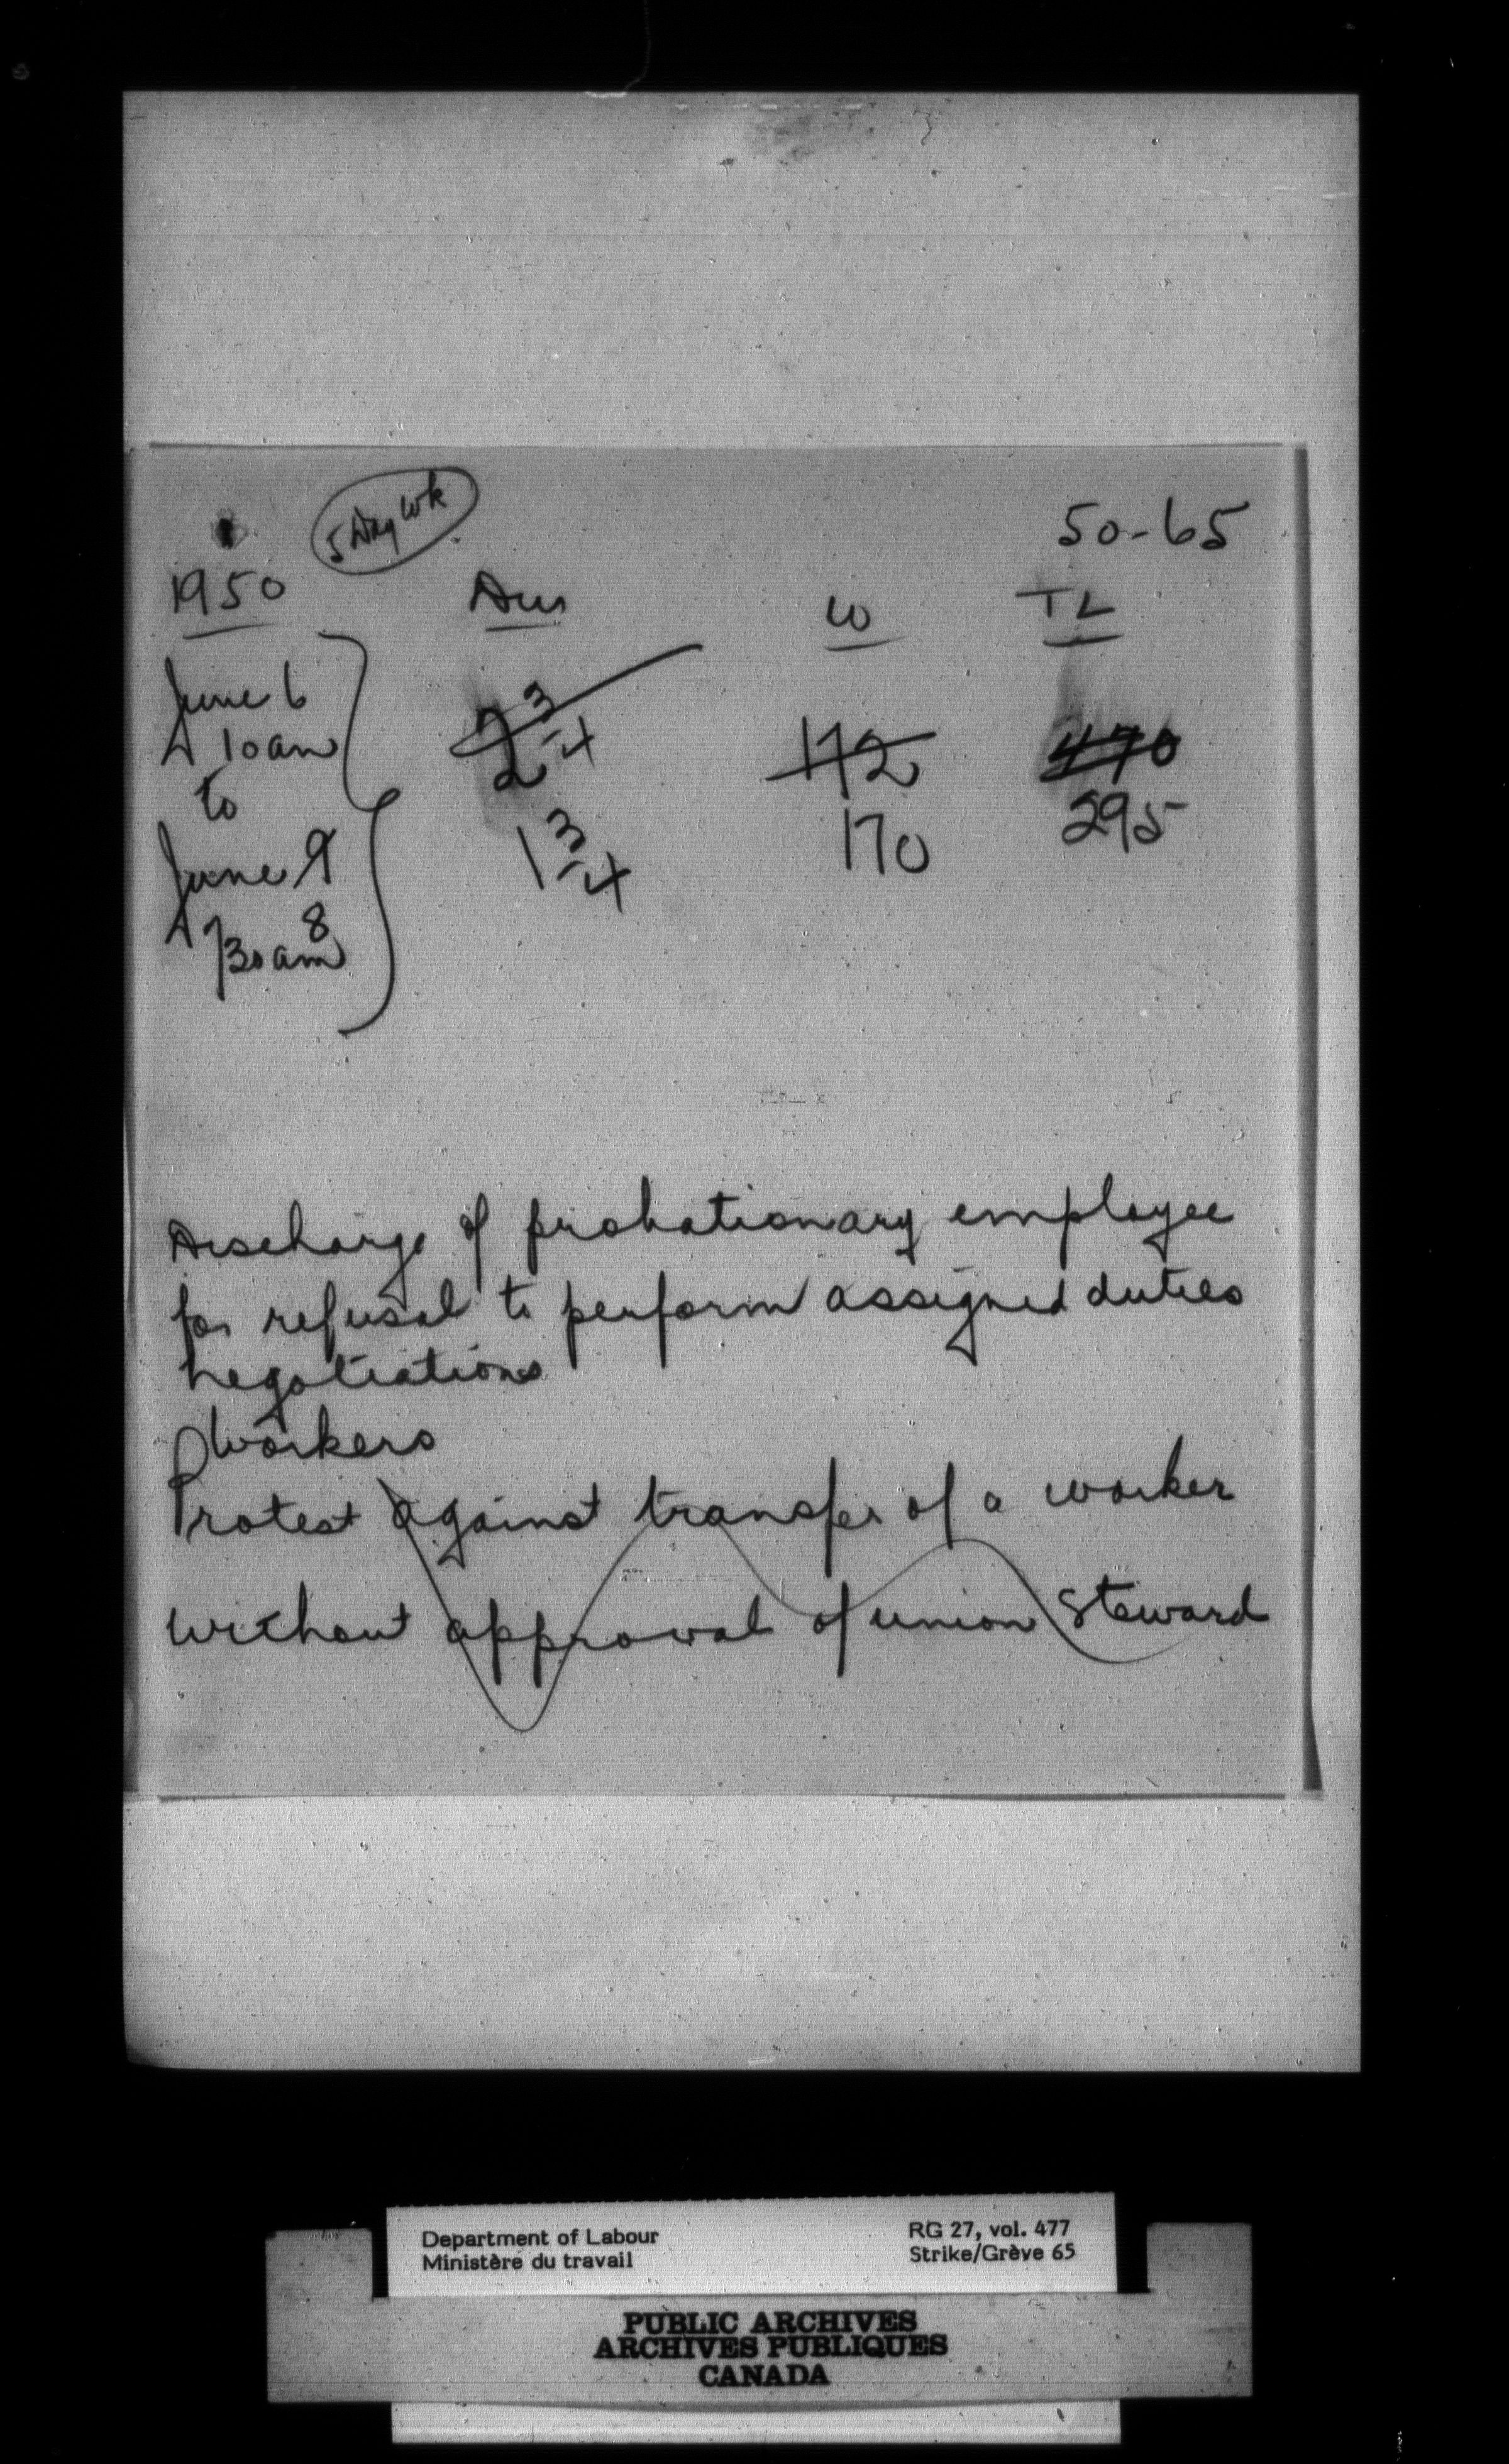 5 Day Wk
50-65
1950 Dur W TL
June 6
10 am
to
2 3/4 172 470
1 3/4 170 295
June 9
8
730 am
Discharge of probationary employee
for refusal to perform assigned duties
negotiations
Workers
Protest against transfer of a worker
without approval of union steward
Department of Labour
Ministère du travail
RG 27, vol. 477
Strike/Grève 65
PUBLIC ARCHIVES
ARCHIVES PUBLIQUES
CANADA